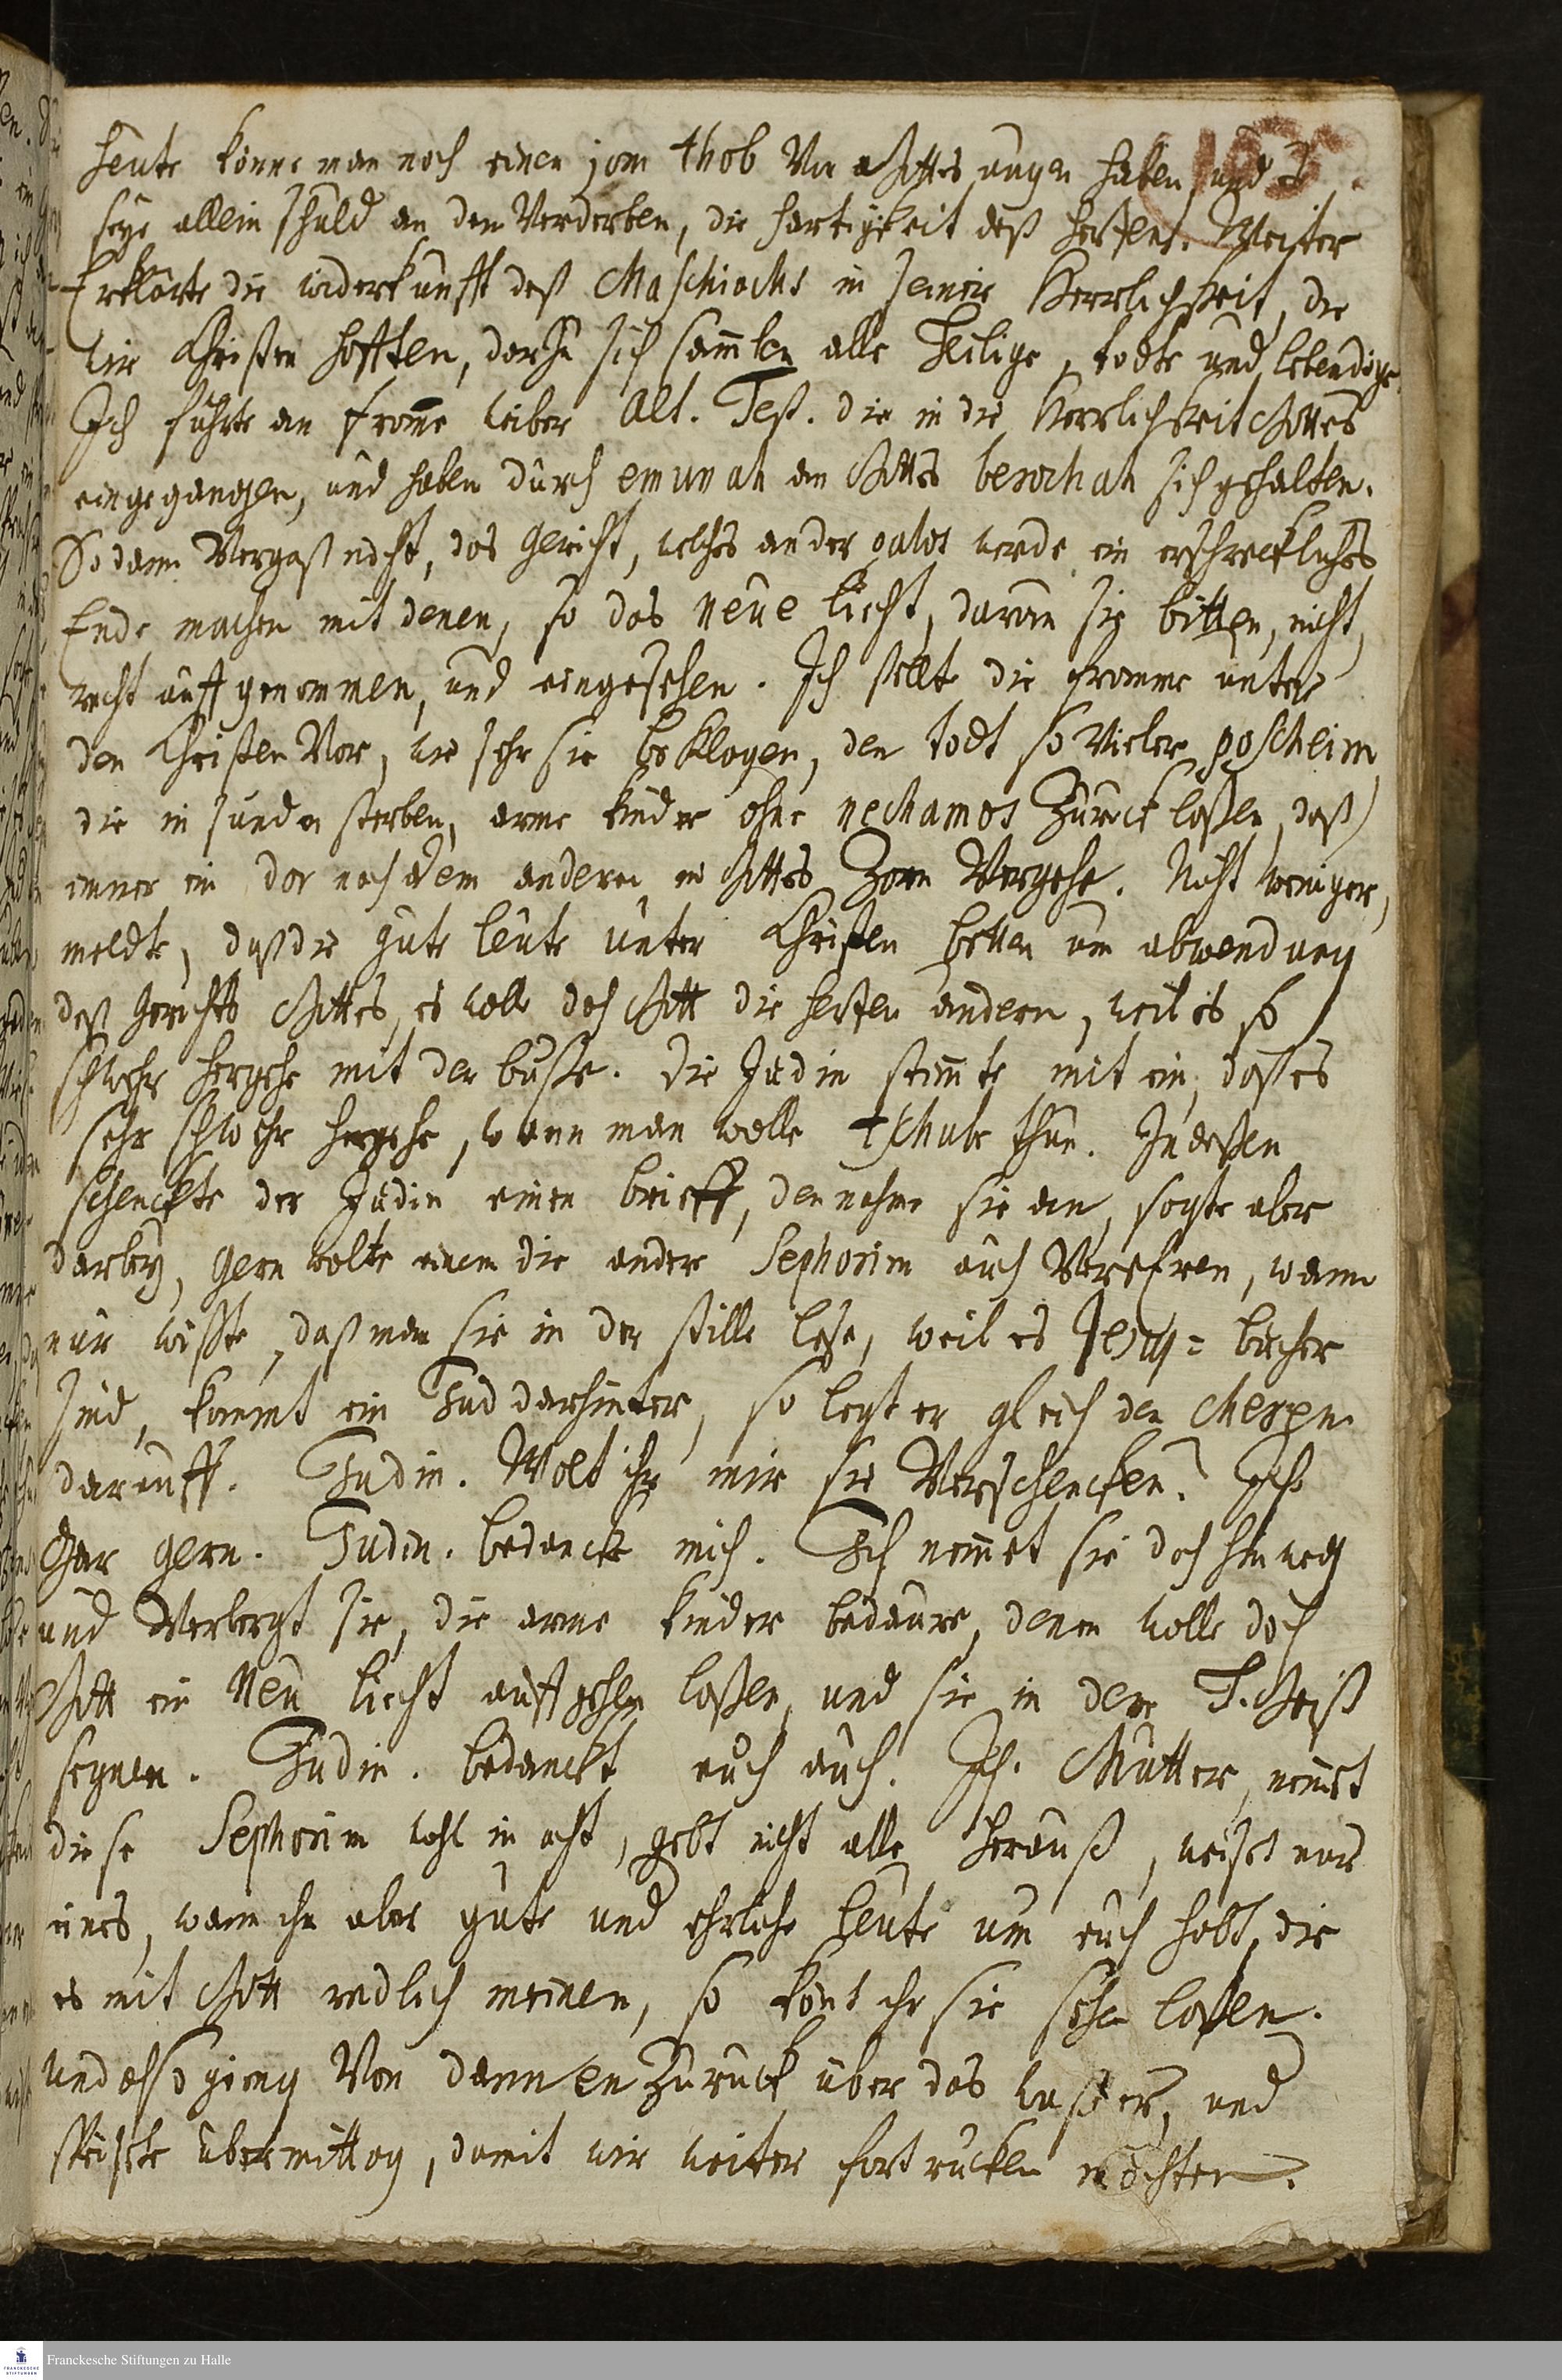 heute könne man noch einen jom thob Vor Gottes augen haben, und
seye allein schuld an dem Verderben, die hartigkeit deß hertzens. Weiter
Erklärte die widerkunfft deß Maschiachs in seiner Herrlichkeit, die
wir Christen hofften, darzu sich samlen alle Heilige, todte und lebendige.
Ich führte an fromme weiber Alt. Test. die in die Herrlichkeit Gottes
eingegangen, und haben durch emunah an Gottes berochah sich gehalten.
So dann Vergaß nicht, das Gericht, welches an der galos werde ein erschreckliches
Ende machen mit denen, so das neue liecht, darum sie bitten, nicht
recht auffgenommen, und eingesehen. Ich stellte die fromme unter
den Christen Vor, wie sehr sie beklagen, den todt so vieler poscheim
die in sunden sterben, arme kinder ohne nechamos Zuruck laßen, daß
immer ein dor nach dem anderen in Gottes Zorn Vergehe. Nicht weniger,
meldte, daß die gute leute unter Christen betten um abwendung
deß Gerichts Gottes, es wolle doch Gott die hertzen andern, weil es so
schwehr hergehe mit der buße. Die Judin stimte mit ein, daß es
sehr schwehr hergehe, wann man wolle tschube thun. Indeßen
schenckte der Judin einen brieff, den nahme sie an, sagte aber
darbey, gern wolte einem die andere Sephorim auch Verehren, wann
nur wißte, daß man sie in der stille lese, weil es bücher
sind, kommt ein Jud darhinter, so legt er gleich den cherem
darauff. Judin. Wolt ihr mir sie Verschencken? Ich
Gar gern. Judin. bedancke mich. Ich nemet sie doch hinweg
und Verbergt sie, die arme kinder bedaure, denen wolle doch
Gott ein Neu liecht auffgehen laßen, und sie in dem H. Geist
segnen. Judin. bedanckt euch auch. Ich. Mutter, nemet
diese Sephorim wohl in acht, gebt nicht alle herauß, weiset nur
eines, wann ihr aber gute und ehrliche leute um euch habt, die
es mit Gott redlich meinen, so könt ihr sie sehen laßen.
und also gieng Von dannen Zuruck über das waßer, und
speißte übermittag, damit wir weiter fortrucken möchten.
Franckesche Stiftungen zu Halle